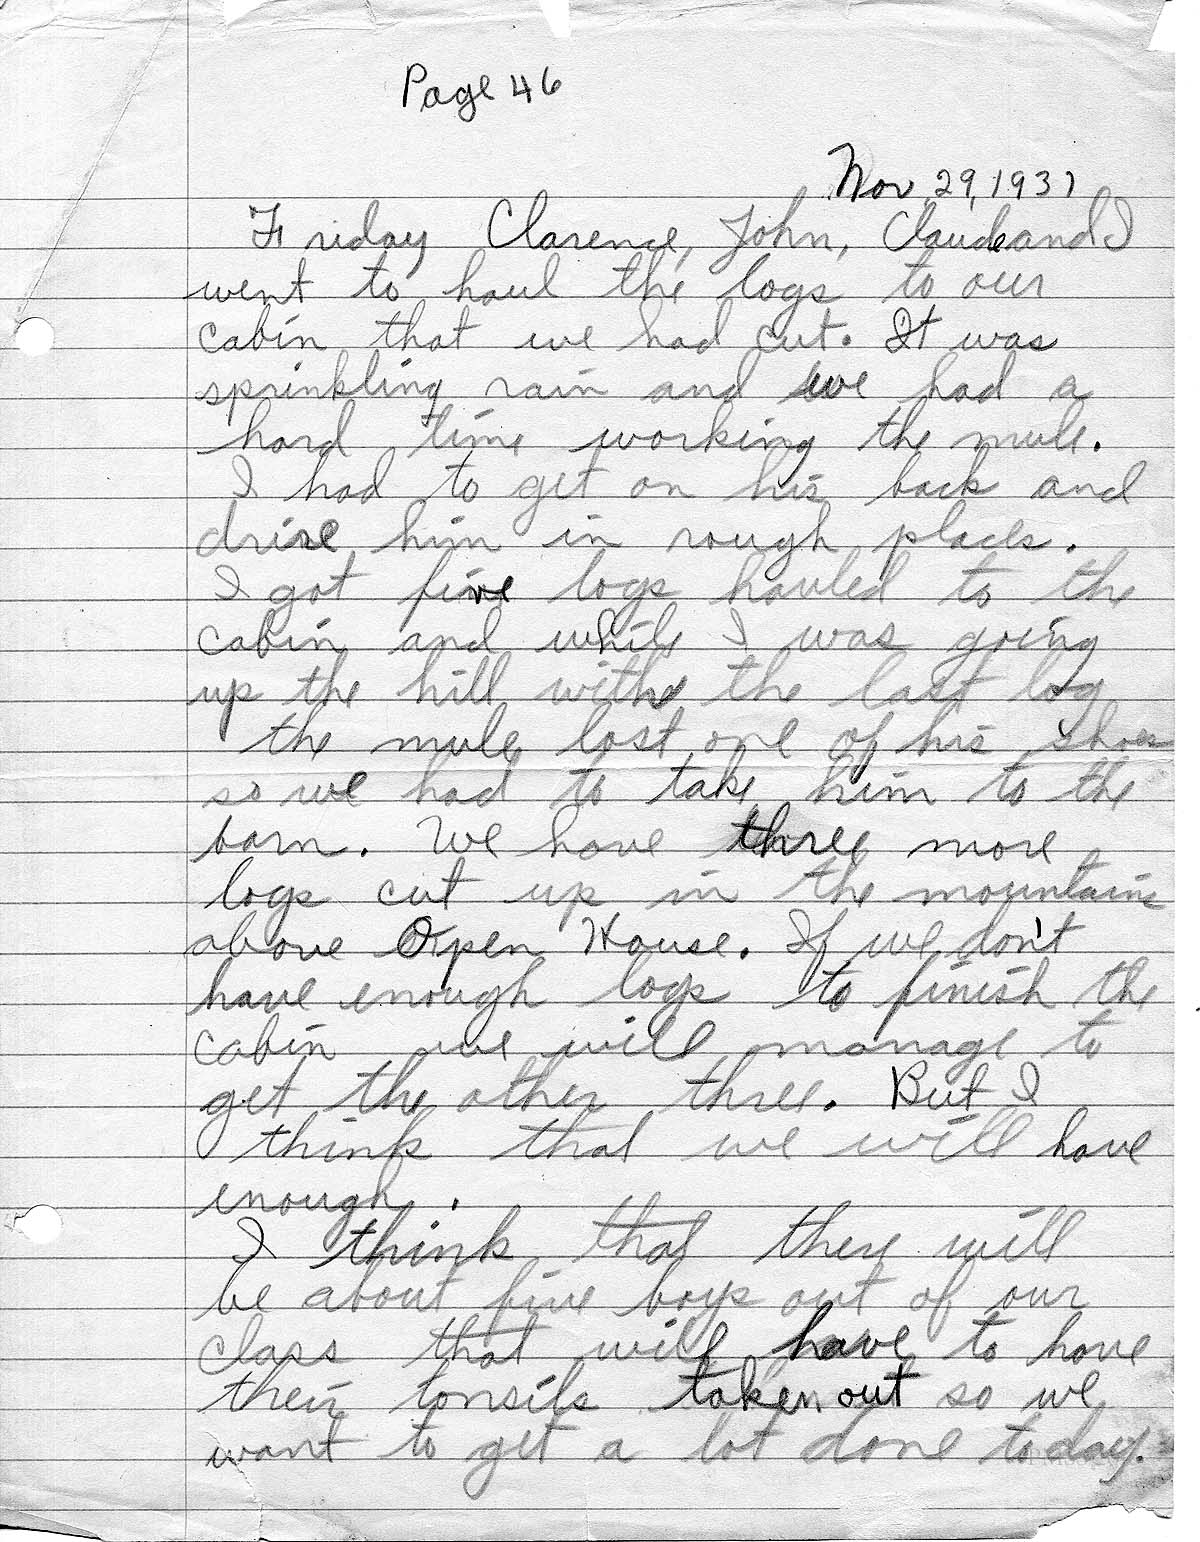 Page 46
Nov 29, 1937
Friday Clarence, John, Claude and I
went to haul the logs to our
cabin that we had cut. It was
sprinkling rain and we had a
hard time working the mule.
I had to get on his back and
drive him in rough places.
I got five logs hauled to the
cabin and while I was going
up the hill with the last log
the mule lost one of his shoes
so we had to take him to the
barn. We have three more
logs cut up in the mountains
above Open House. If we don't
have enough logs to finish the
cabin we will manage to
get the other three. But I
think that we will have
enough.
I think that there will
be about five boys out of our
class that will have to have
their tonsils taken out so we
want to get a lot done today.